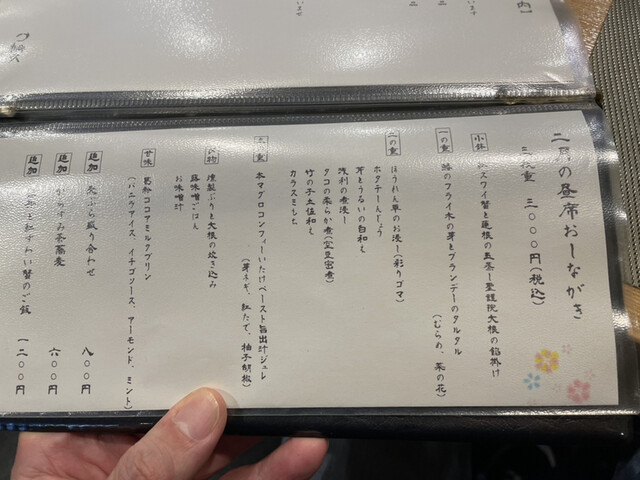 二月の昼席おしながき
三 重 三〇〇〇円(税込)
小鉢 スワイ蟹と蓮根の五茶 聖護院大根の餡掛け
一の重 のフライ木の芽とブランデーのタルタル
(むらめ、菜の花)
二の重 ほうれん草のお浸し(彩りゴマ)
ホタテしんじょう
芽とうるいの白和え
浅利の煮浸し
タコの柔らか煮(空豆蜜煮)
竹の子土佐和え
カラスミもち
重 本マグロコンフィーいたけペースト旨出汁ジュレ
(芽ネギ、紅たで、柚子胡椒)
物 燻製ぶりと大根の炊き込み
蕗味噌ごはん
お味噌汁
甘味 葛粉ココアミルクプリン
(バニラアイス、イチゴソース、アーモンド、ミント)
追加 天ぷら盛り合わせ 八〇〇円
追加 からすみ茶蕎麦 六〇〇円
追加 紅ずわい蟹のご飯 一二〇〇円